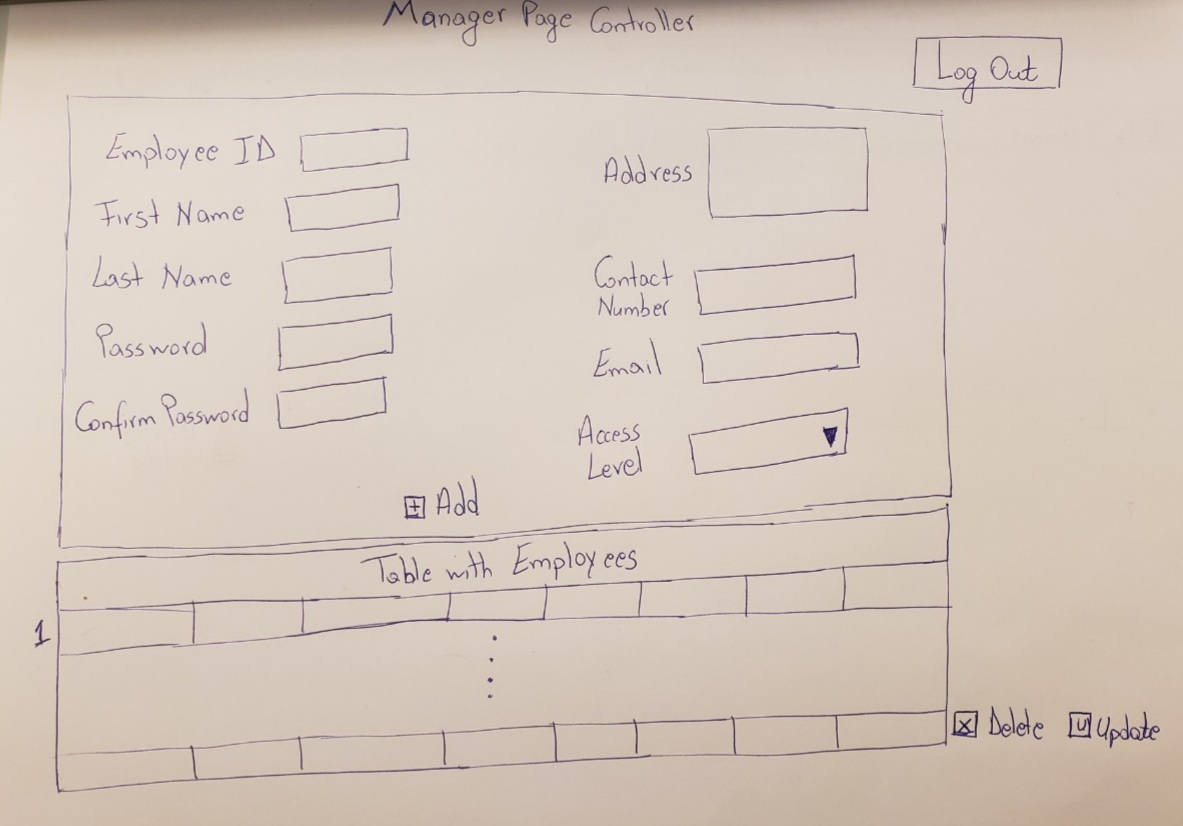 Manager Page Controller
Log Out
Employee ID
First Name
Last Name
Password
Confirm Password
Address
Contact
Number
Email
Access
Level
+ Add
Table with Employees
1
x Delete
U Update